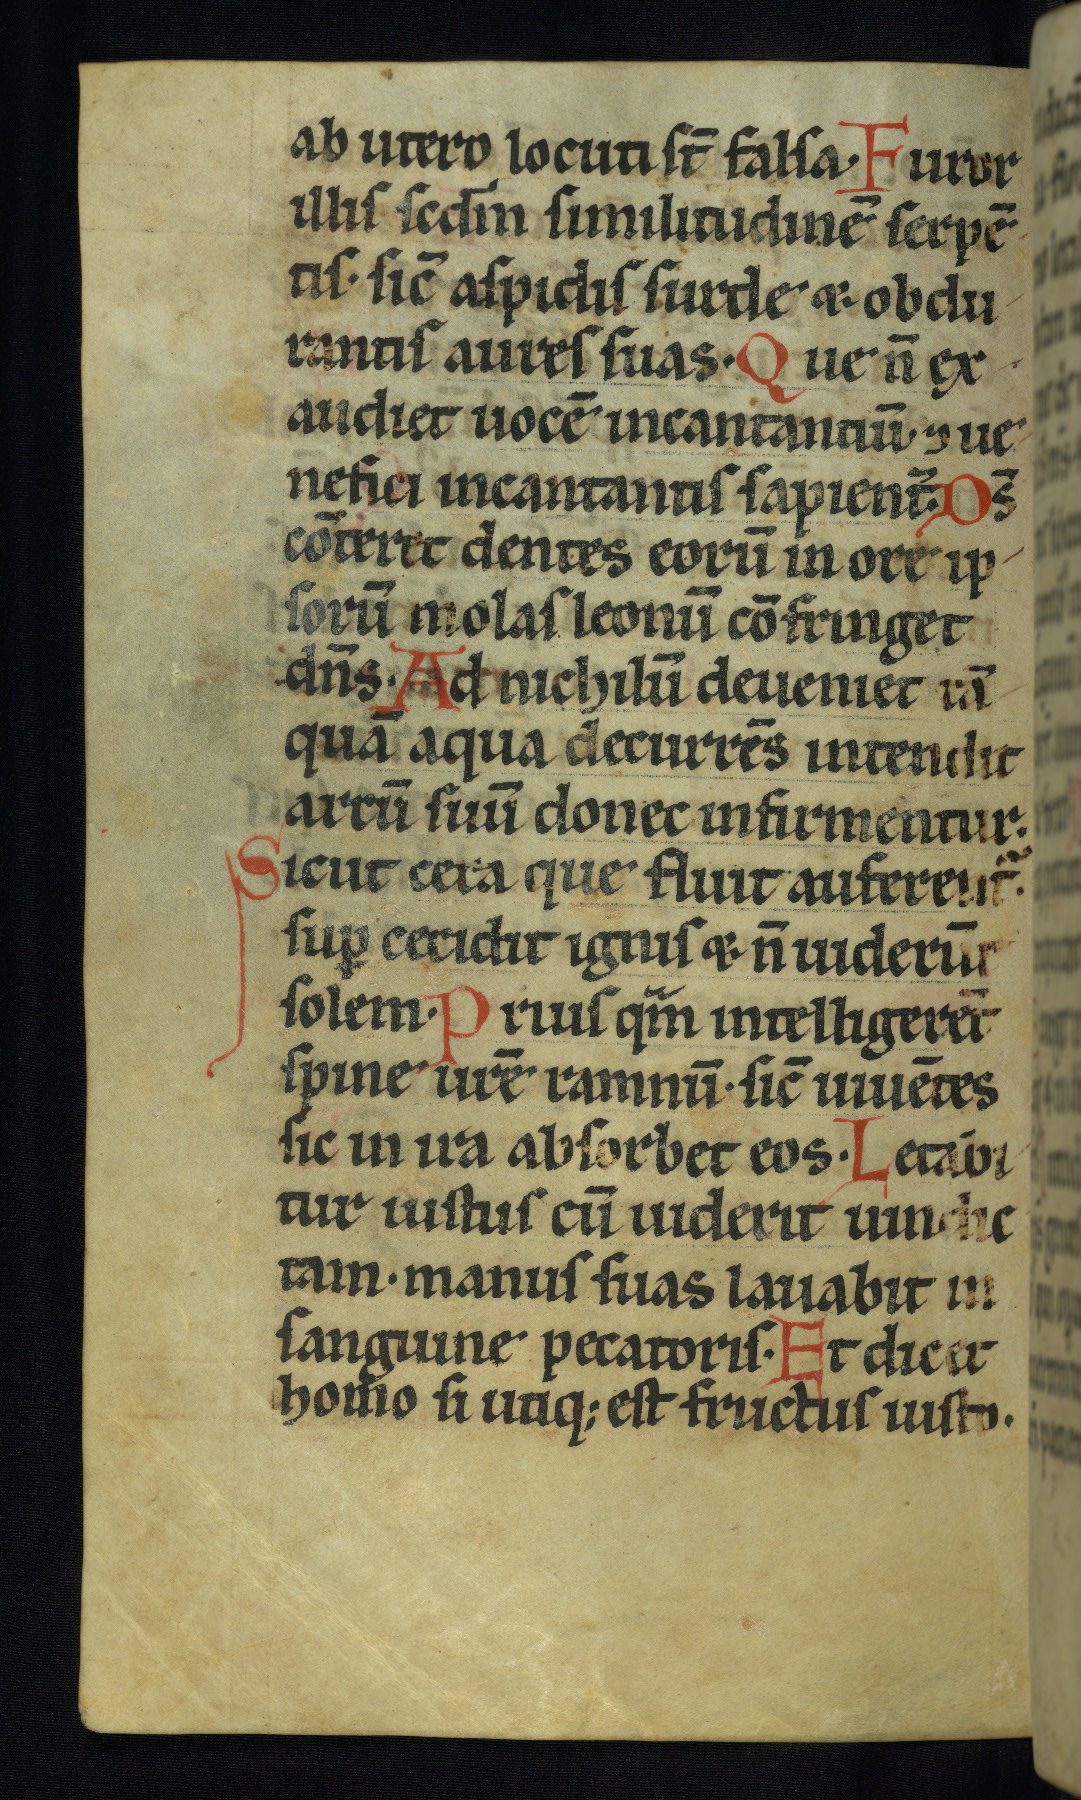 ab utero locuti st̄ falsa. Furor
illis scdm̄ similitudinē serpē
tis. sic̄ aspidis surde & obdu
rantis aures suas. Que n̄ ex
audiet uocē incantantiū. ⁊ ue
nefici incantantis sapient̄. Ds̄
cōteret dentes eorū in ore ip
sorū molas leonū cōfringet
dn̄s. Ad nichilū deueniet tā
quā aqua decurrēs intendit
arcū suū donec infirmentur.
Sicut cera que fluit auferent̄.
sup̄ cecidit ignis & n̄ uiderūt
solem. Prius qm̄ intelligerēt
spine ur̄e ramnū. sic̄ uiuētes
sic in ira absorbet eos. Letabi
tur iustus cū uiderit uindic
tam. manus suas lauabit in
sanguine pecatoris. Et dicet
homo si utiq; est fructus iusto.